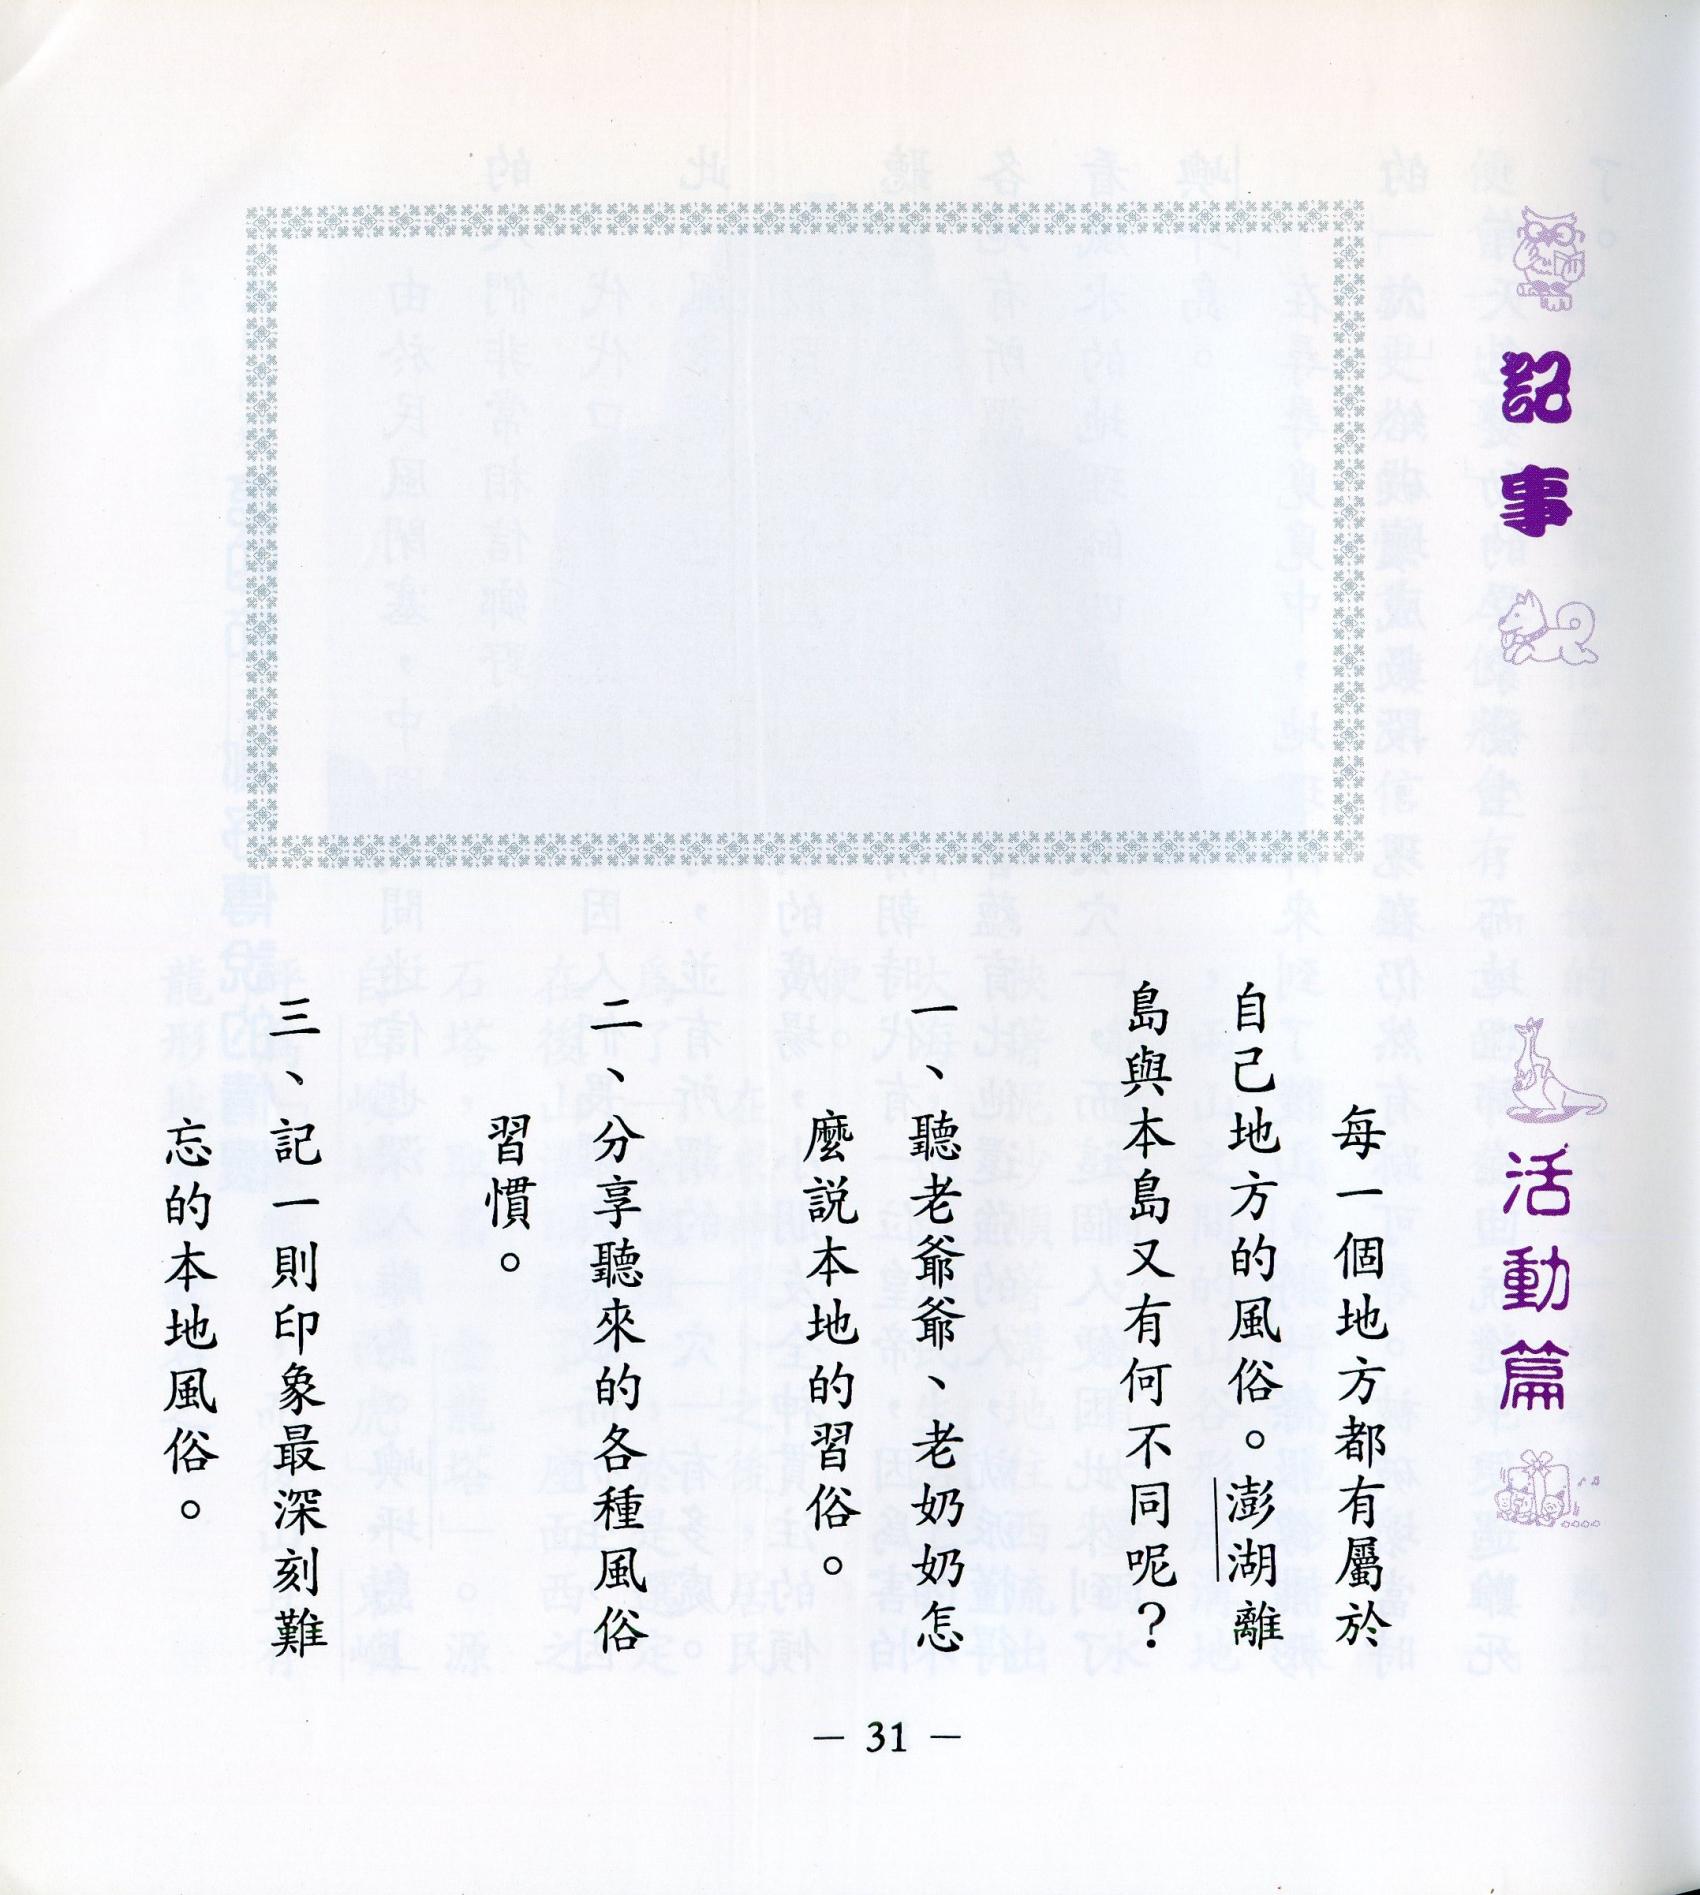 記事
活動篇
每一個地方都有屬於
自己地方的風俗。澎湖離
島與本島又有何不同呢？
一、聽老爺爺、老奶奶怎
麼說本地的習俗。
二、分享聽來的各種風俗
習慣。
三、記一則印象最深刻難
忘的本地風俗。
— 31 —